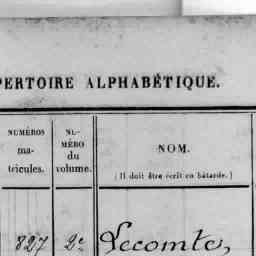 PERTOIRE ALPHABÉTIQUE.
NUMÉROS
ma-
tricules.
NU-
MÉRO
du
volume.
NOM.
(Il doit être écrit en bâtarde.)
827 2e Lecomte,